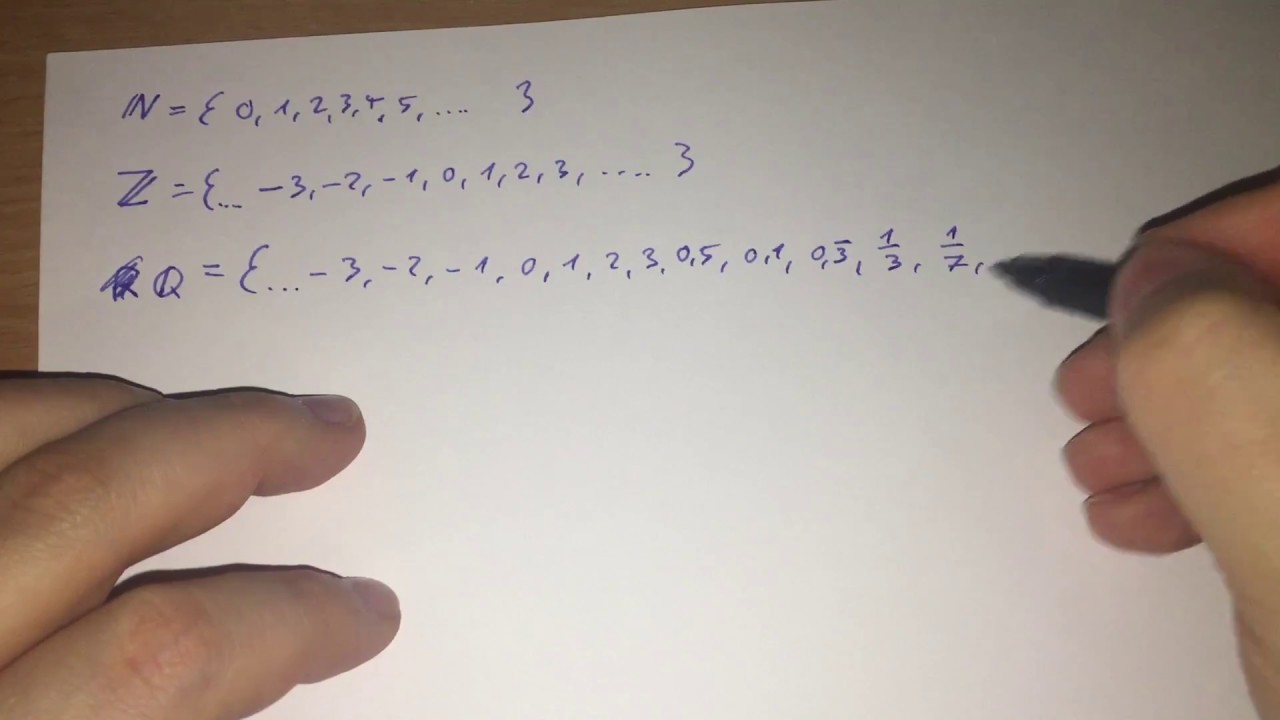 ℕ = { 0, 1, 2, 3, 4, 5, .... }
ℤ = {... -3, -2, -1, 0, 1, 2, 3, .... }
ℚ = {... -3, -2, -1, 0, 1, 2, 3, 0,5, 0,1, 0,3̅, 1/3, 1/7,